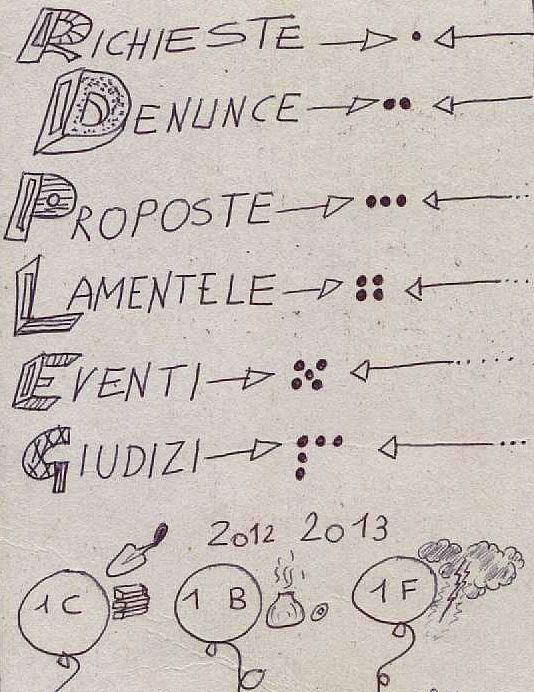 RICHIESTE
DENUNCE
PROPOSTE
LAMENTELE
EVENTI
GIUDIZI
2012 2013
1C 1 B 1 F